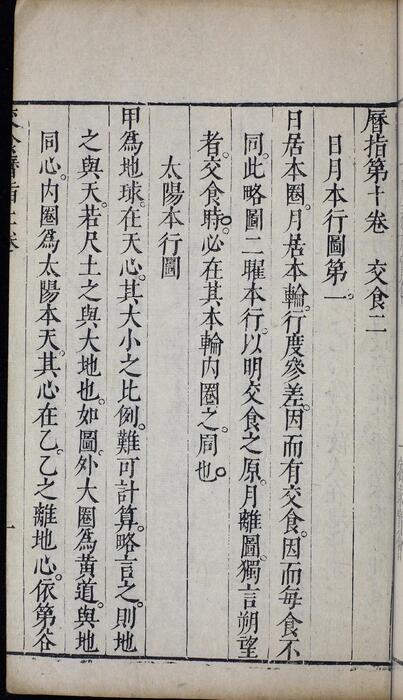 曆指第十卷　交食二
日月本行圖第一。
日居本圈。月居本輪。行度參差。因而有交食。因而每食不
同。此略圖二曜本行。以明交食之原。月離圖。獨言朔望
者。交食時。必在其本輪內圈之周也。
太陽本行圖
甲爲地球。在天心。其大小之比例。難可計算。略言之。則地
之與天。若尺土之與大地也。如圖。外大圈爲黃道。與地
同心。內圈爲太陽本天。其心在乙。乙之離地心。依第谷
交食曆指二卷
一